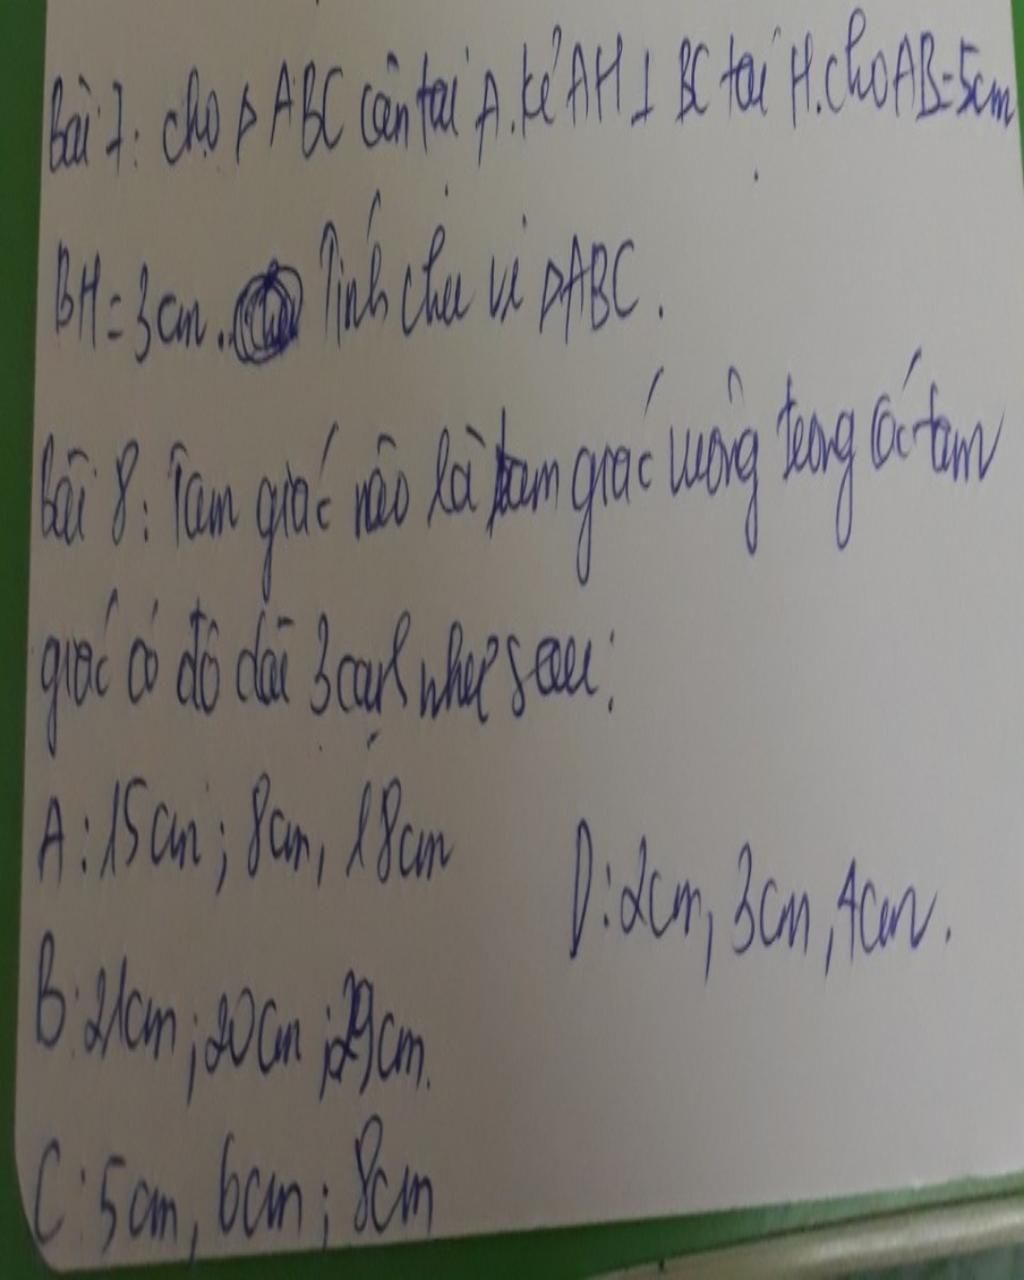 Bài 7: cho △ ABC cân tại A. kẻ AH ⊥ BC tại H. cho AB = 5cm
BH = 3cm. Tính chu vi △ABC.
Bài 8: Tam giác nào là tam giác vuông trong các tam
giác có độ dài 3 cạnh như sau:
A: 15cm; 8cm, 18cm
B: 21cm; 20cm; 29cm.
C: 5cm, 6cm; 8cm
D: 2cm, 3cm, 4cm.